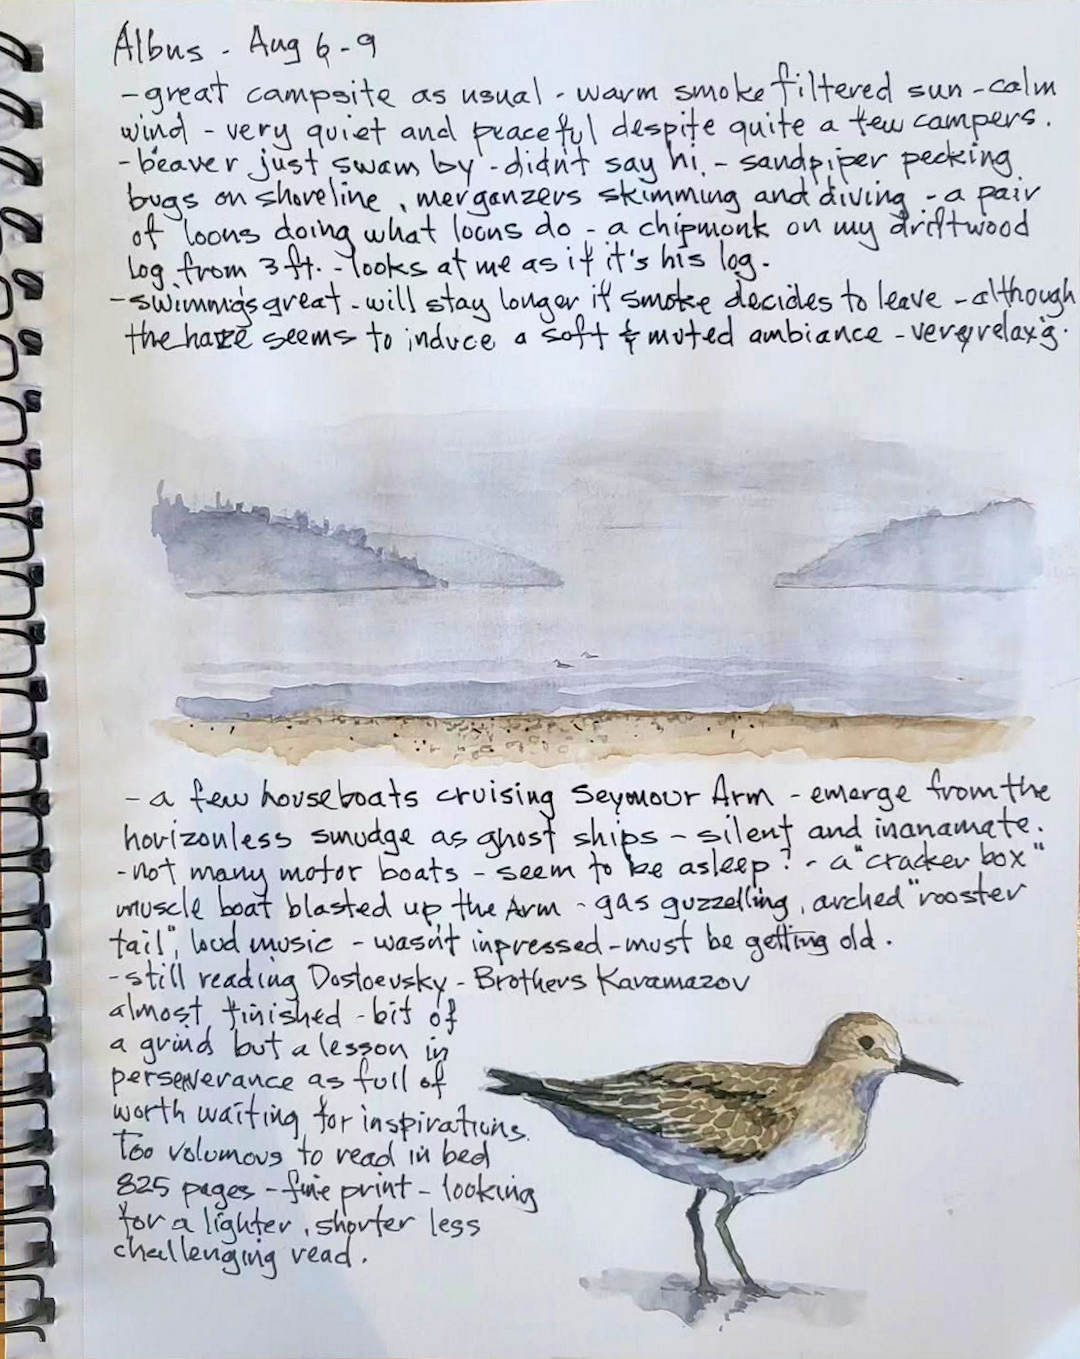 Albus - Aug 6-9
- great campsite as usual - warm smoke filtered sun - calm
wind - very quiet and peaceful despite quite a few campers.
- beaver just swam by - didn't say hi. - sandpiper pecking
bugs on shoreline, merganzers skimming and diving - a pair
of loons doing what loons do - a chipmonk on my driftwood
log from 3 ft. - looks at me as if it's his log.
- swimmg's great - will stay longer if smoke decides to leave - although
the haze seems to induce a soft & muted ambiance - very relax'g.
- a few houseboats cruising Seymour Arm - emerge from the
horizonless smudge as ghost ships - silent and inanamate.
- not many motor boats - seem to be asleep? - a "cracker box"
muscle boat blasted up the Arm - gas guzzelling, arched "rooster
tail", loud music - wasn't inpressed - must be getting old.
- still reading Dostoevsky - Brothers Karamazov
almost finished - bit of
a grind but a lesson in
perseverance as full of
worth waiting for inspirations.
Too volumous to read in bed
825 pages - fine print - looking
for a lighter, shorter less
challenging read.